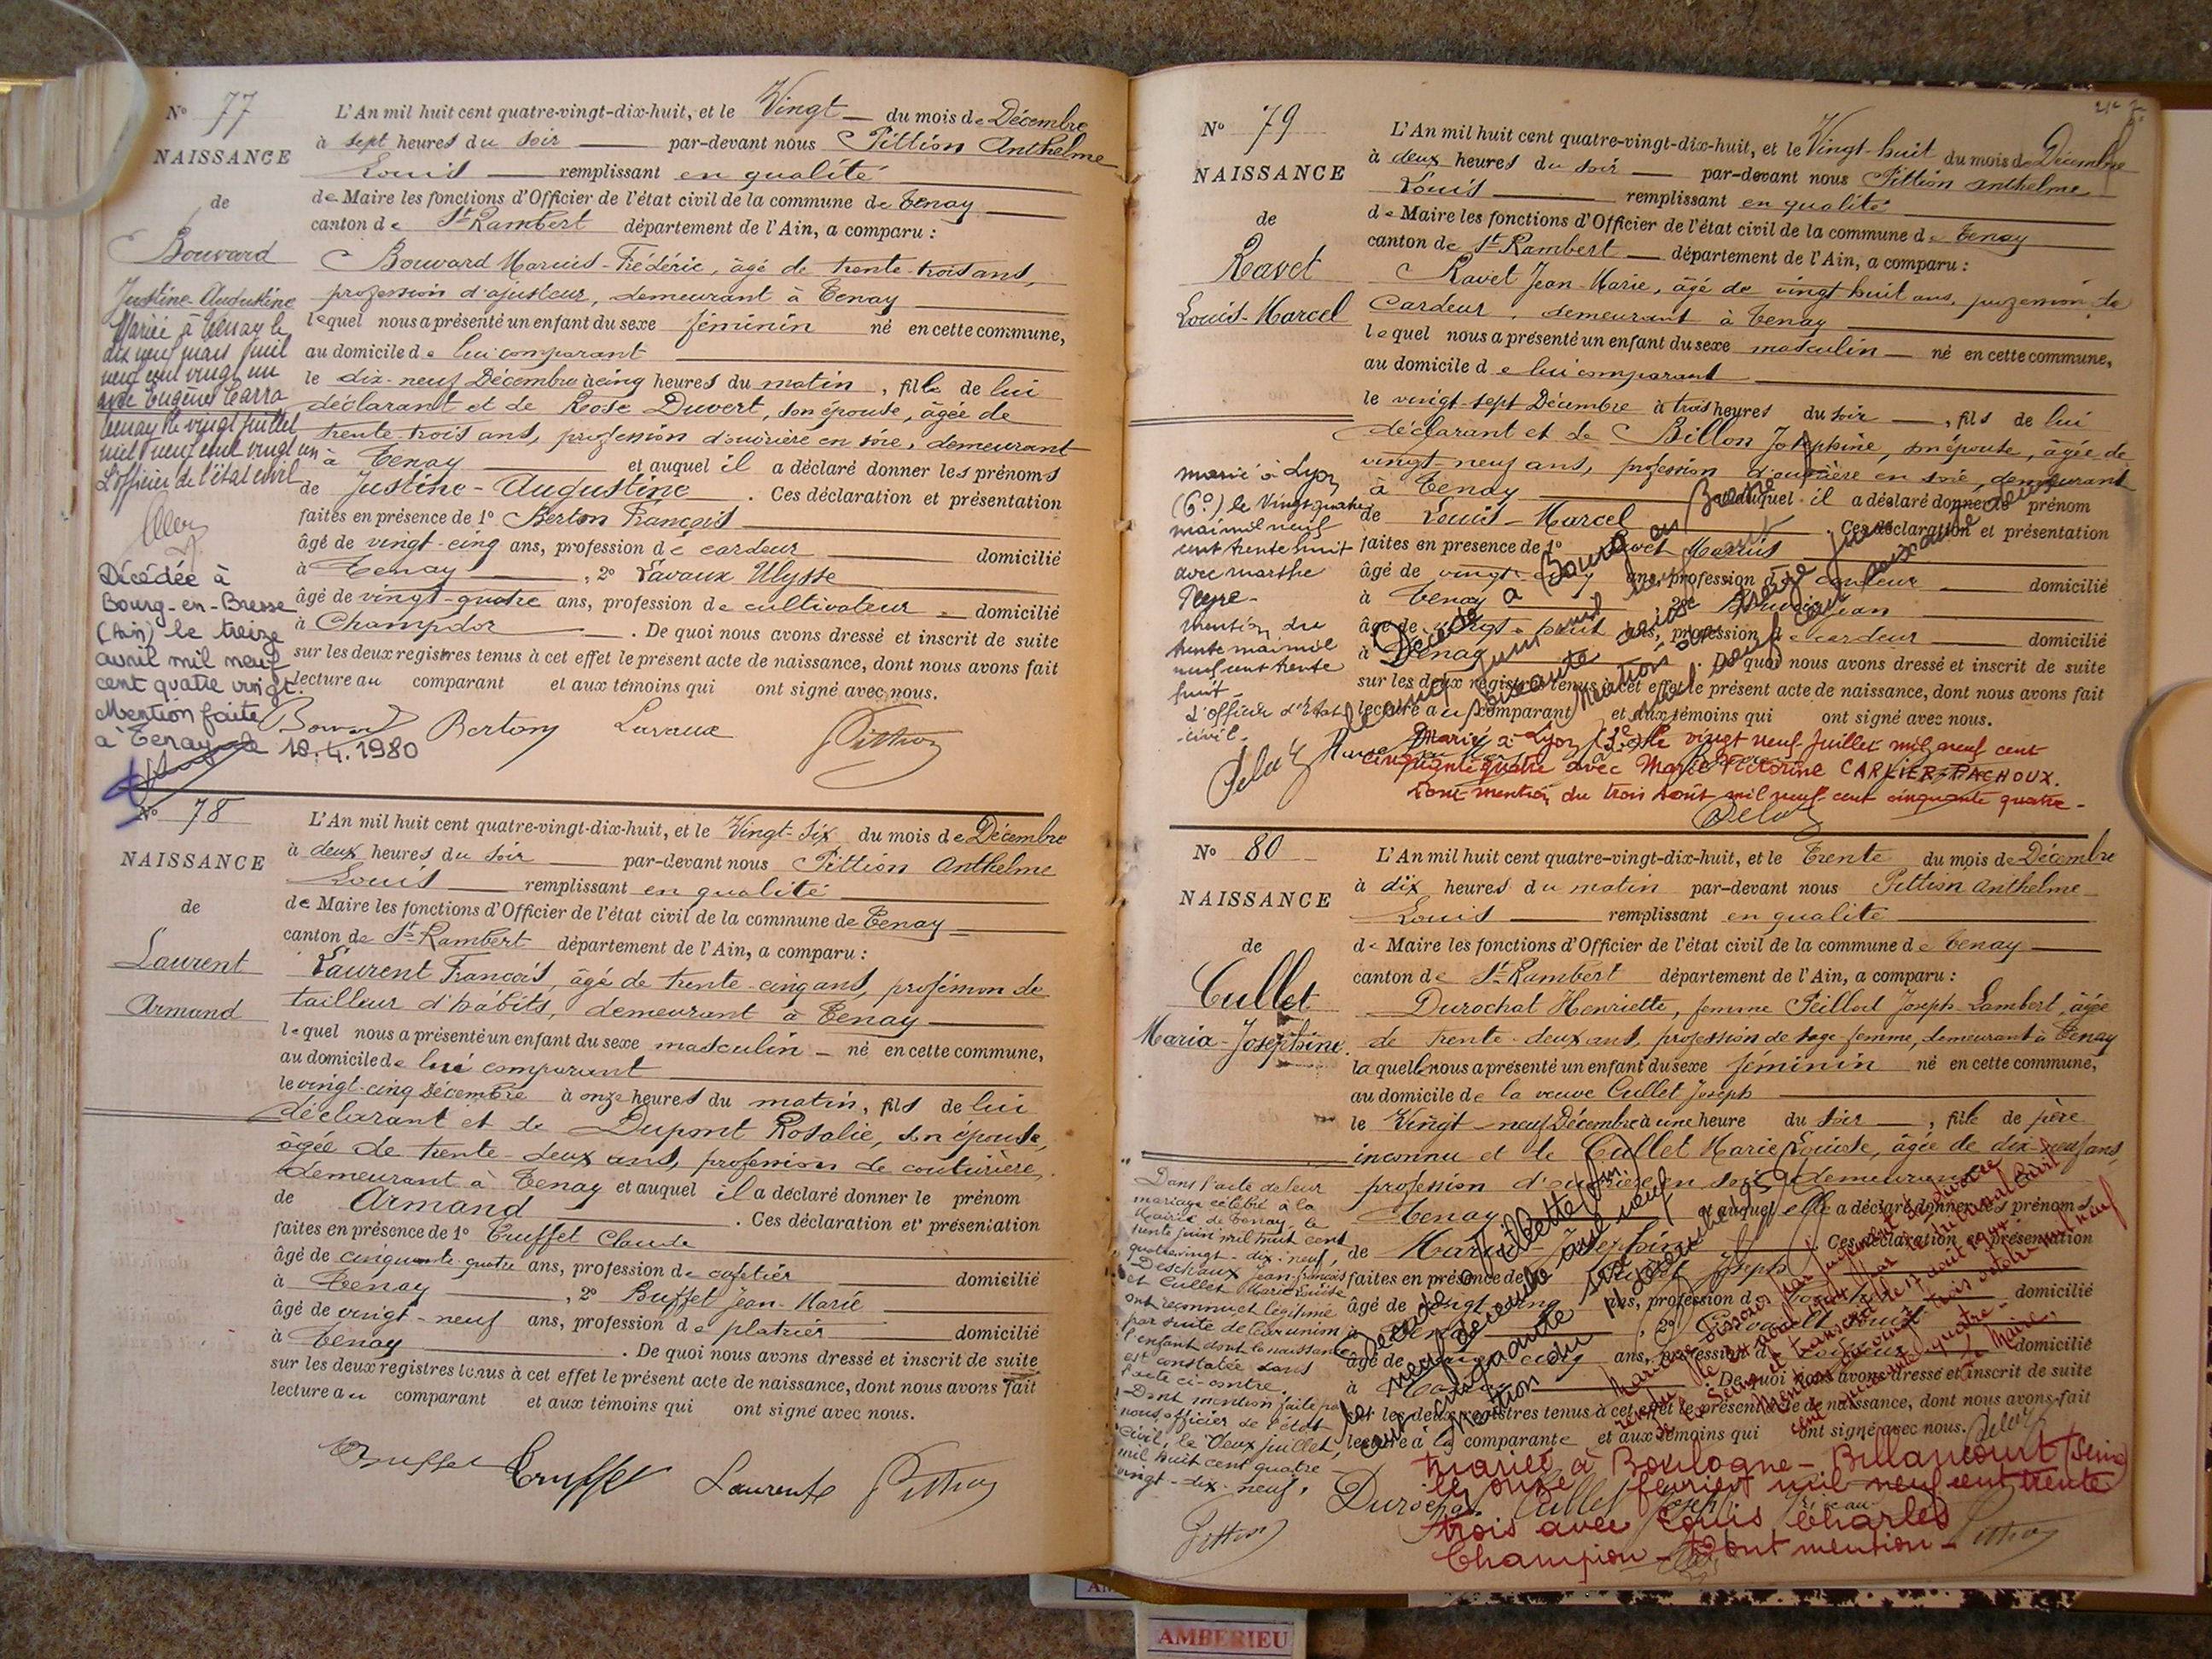 N° 77
NAISSANCE
de
Bouvard
Justine-Augustine
Mariée à Tenay le
dix neuf mars mil
neuf cent vingt un
avec Eugène Carra
Tenay le vingt juillet
mil neuf cent vingt un
L'officier de l'état civil
Décédée à
Bourg-en-Bresse
(Ain) le treize
avril mil neuf
cent quatre vingt.
Mention faite
à Tenay le 18.4.1980
L'An mil huit cent quatre-vingt-dix-huit, et le Vingt du mois de Décembre
à sept heures du soir par-devant nous Pittion Anthelme
Louis remplissant en qualité
de Maire les fonctions d'Officier de l'état civil de la commune de Tenay
canton de St Rambert département de l'Ain, a comparu :
Bouvard Marius-Frédéric, âgé de trente-trois ans,
profession d'ajusteur, demeurant à Tenay
lequel nous a présenté un enfant du sexe féminin né en cette commune,
au domicile de lui comparant
le dix-neuf Décembre à cinq heures du matin, fille de lui
déclarant et de Rose Duvert, son épouse, âgée de
trente-trois ans, profession d'ouvrière en soie, demeurant
à Tenay et auquel il a déclaré donner les prénoms
de Justine-Augustine. Ces déclaration et présentation
faites en présence de 1° Berton François
âgé de vingt-cinq ans, profession de cardeur domicilié
à Tenay, 2° Lavaux Ulysse
âgé de vingt-quatre ans, profession de cultivateur domicilié
à Champdor. De quoi nous avons dressé et inscrit de suite
sur les deux registres tenus à cet effet le présent acte de naissance, dont nous avons fait
lecture au comparant et aux témoins qui ont signé avec nous.
Bouvard Berton Lavaux Pittion
N° 78
NAISSANCE
de
Laurent
Armand
L'An mil huit cent quatre-vingt-dix-huit, et le Vingt-six du mois de Décembre
à deux heures du soir par-devant nous Pittion Anthelme
Louis remplissant en qualité
de Maire les fonctions d'Officier de l'état civil de la commune de Tenay
canton de St Rambert département de l'Ain, a comparu :
Laurent François, âgé de trente-cinq ans, profession de
tailleur d'habits, demeurant à Tenay
lequel nous a présenté un enfant du sexe masculin né en cette commune,
au domicile de lui comparant
le vingt-cinq Décembre à onze heures du matin, fils de lui
déclarant et de Dupont Rosalie, son épouse,
âgée de trente-deux ans, profession de couturière,
demeurant à Tenay et auquel il a déclaré donner le prénom
de Armand. Ces déclaration et présentation
faites en présence de 1° Truffet Claude
âgé de cinquante quatre ans, profession de cafetier domicilié
à Tenay, 2° Buffet Jean-Marie
âgé de vingt-neuf ans, profession de platrier domicilié
à Tenay. De quoi nous avons dressé et inscrit de suite
sur les deux registres tenus à cet effet le présent acte de naissance, dont nous avons fait
lecture au comparant et aux témoins qui ont signé avec nous.
Truffet Laurent Pittion
N° 79
NAISSANCE
de
Ravet
Louis-Marcel
marié à Lyon
(6e) le Vingt quatre
mai mil neuf
cent trente huit
avec Marthe
Peyre
mention du
trente mai mil
neuf cent trente
huit
L'officier d'Etat
civil.
L'An mil huit cent quatre-vingt-dix-huit, et le Vingt-huit du mois de Décembre
à deux heures du soir par-devant nous Pittion Anthelme
Louis remplissant en qualité
de Maire les fonctions d'Officier de l'état civil de la commune de Tenay
canton de St Rambert département de l'Ain, a comparu :
Ravet Jean-Marie, âgé de vingt-huit ans, profession de
cardeur, demeurant à Tenay
lequel nous a présenté un enfant du sexe masculin né en cette commune,
au domicile de lui comparant
le vingt-sept Décembre à trois heures du soir, fils de lui
déclarant et de Billon Joséphine, son épouse, âgée de
vingt-neuf ans, profession d'ouvrière en soie, demeurant
à Tenay et auquel il a déclaré donner les prénom
de Louis-Marcel. Ces déclaration et présentation
faites en présence de 1° Ravet Marius
âgé de vingt-cinq ans, profession de cardeur domicilié
à Tenay, 2° Jean
âgé de vingt-huit ans, profession de cardeur domicilié
à Tenay. De quoi nous avons dressé et inscrit de suite
sur les deux registres tenus à cet effet le présent acte de naissance, dont nous avons fait
lecture au comparant et aux témoins qui ont signé avec nous.
Décédé à Bourg en Bresse
Marié à Lyon (3e) le vingt neuf juillet mil neuf cent
cinquante quatre avec Marie Victorine CARLIER-FACHOUX.
Dont mention du trois août mil neuf cent cinquante quatre
N° 80
NAISSANCE
de
Cullet
Maria-Joséphine.
Dans l'acte de leur
mariage célébré à la
Mairie de Tenay, le
trente juin mil huit cent
quatrevingt-dix-neuf,
Descheaux Jean-François
et Cullet Marie Louise
ont reconnu et légitimé
par suite de leur union
l'enfant dont la naissance
est constatée dans
l'acte ci-contre.
Dont mention faite par
nous, officier de l'état
civil, le deux juillet,
mil huit cent quatre
vingt-dix-neuf.
Pittion
L'An mil huit cent quatre-vingt-dix-huit, et le Trente du mois de Décembre
à dix heures du matin par-devant nous Pittion Anthelme
Louis remplissant en qualité
de Maire les fonctions d'Officier de l'état civil de la commune de Tenay
canton de St Rambert département de l'Ain, a comparu :
Durochat Henriette, femme Peillod Joseph Lambert, âgée
de trente-deux ans, profession de sage-femme, demeurant à Tenay
laquelle nous a présenté un enfant du sexe féminin né en cette commune,
au domicile de la veuve Cullet Joseph
le Vingt-neuf Décembre à une heure du soir, fille de père
inconnu et de Cullet Marie Louise, âgée de dix-neuf ans,
profession d'ouvrière en soie, demeurant
Tenay et auquel elle a déclaré donner les prénoms
de Maria-Joséphine. Ces déclaration et présentation
faites en présence de 1° Cullet Joseph
âgé de vingt-cinq ans, profession de domicilié
à Tenay, 2° Louis
âgé de cinq ans, profession de domicilié
à Tenay. De quoi nous avons dressé et inscrit de suite
sur les deux registres tenus à cet effet le présent acte de naissance, dont nous avons fait
lecture à la comparante et aux témoins qui ont signé avec nous.
Mariage dissous par jugement de divorce
Mariée à Boulogne-Billancourt (Seine)
le onze février mil neuf cent trente
trois avec Louis Charles
Champion - Dont mention
Durochat Cullet Joseph Pittion
AMBERIEU